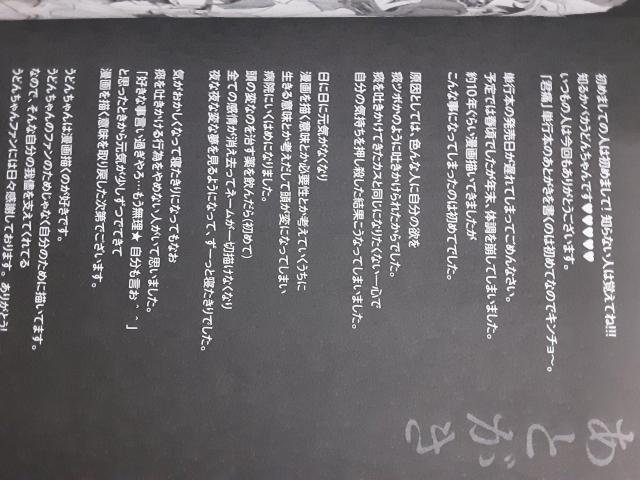 あとがき
初めましての人は初めまして！知らない人は覚えてね!!!
知るかバカうどんちゃんです♥♥♥♥♥
いつもの人は今回もありがとうございます。
「君痛」単行本のあとがきを書くのは初めてなのでキンチョ〜。
単行本の発売日が遅れてしまってごめんなさい。
予定では春頃でしたが年末、体調を崩してしまいました。
約10年ぐらい漫画描いてきましたが
こんな事になってしまったのは初めてでした。
原因としては、色んな人に自分の欲を
痰ツボかのように吐きかけられたからでした。
痰を吐きかけてきたカスと同じになりたくない一心で
自分の気持ちを押し殺した結果こうなってしまいました。
日に日に元気がなくなり
漫画を描く意味とか必要性とか考えていくうちに
生きる意味とか考えだして頭が変になってしまい
病院にいくはめになりました。
頭の変なのを治す薬を飲んだら（初めて）
全ての感情が消え去ってネームが一切描けなくなり
夜な夜な変な夢を見るようになって、ず〜っと寝たきりでした。
気がおかしくなって寝たきりになってもなお
痰を吐きかける行為をやめない人がいて思いました。
「好きな事言い過ぎやろ…もう無理★ 自分も言お＾＾」
と思ったときから元気が少しずつでてきて
漫画を描く意味を取り戻した次第でございます。
うどんちゃんは漫画描くのが好きです。
うどんちゃんのファンのためじゃなく自分のために描いてます。
なので、そんな自分の我儘を支えてくれてる
うどんちゃんファンには日々感謝しております。ありがとう！